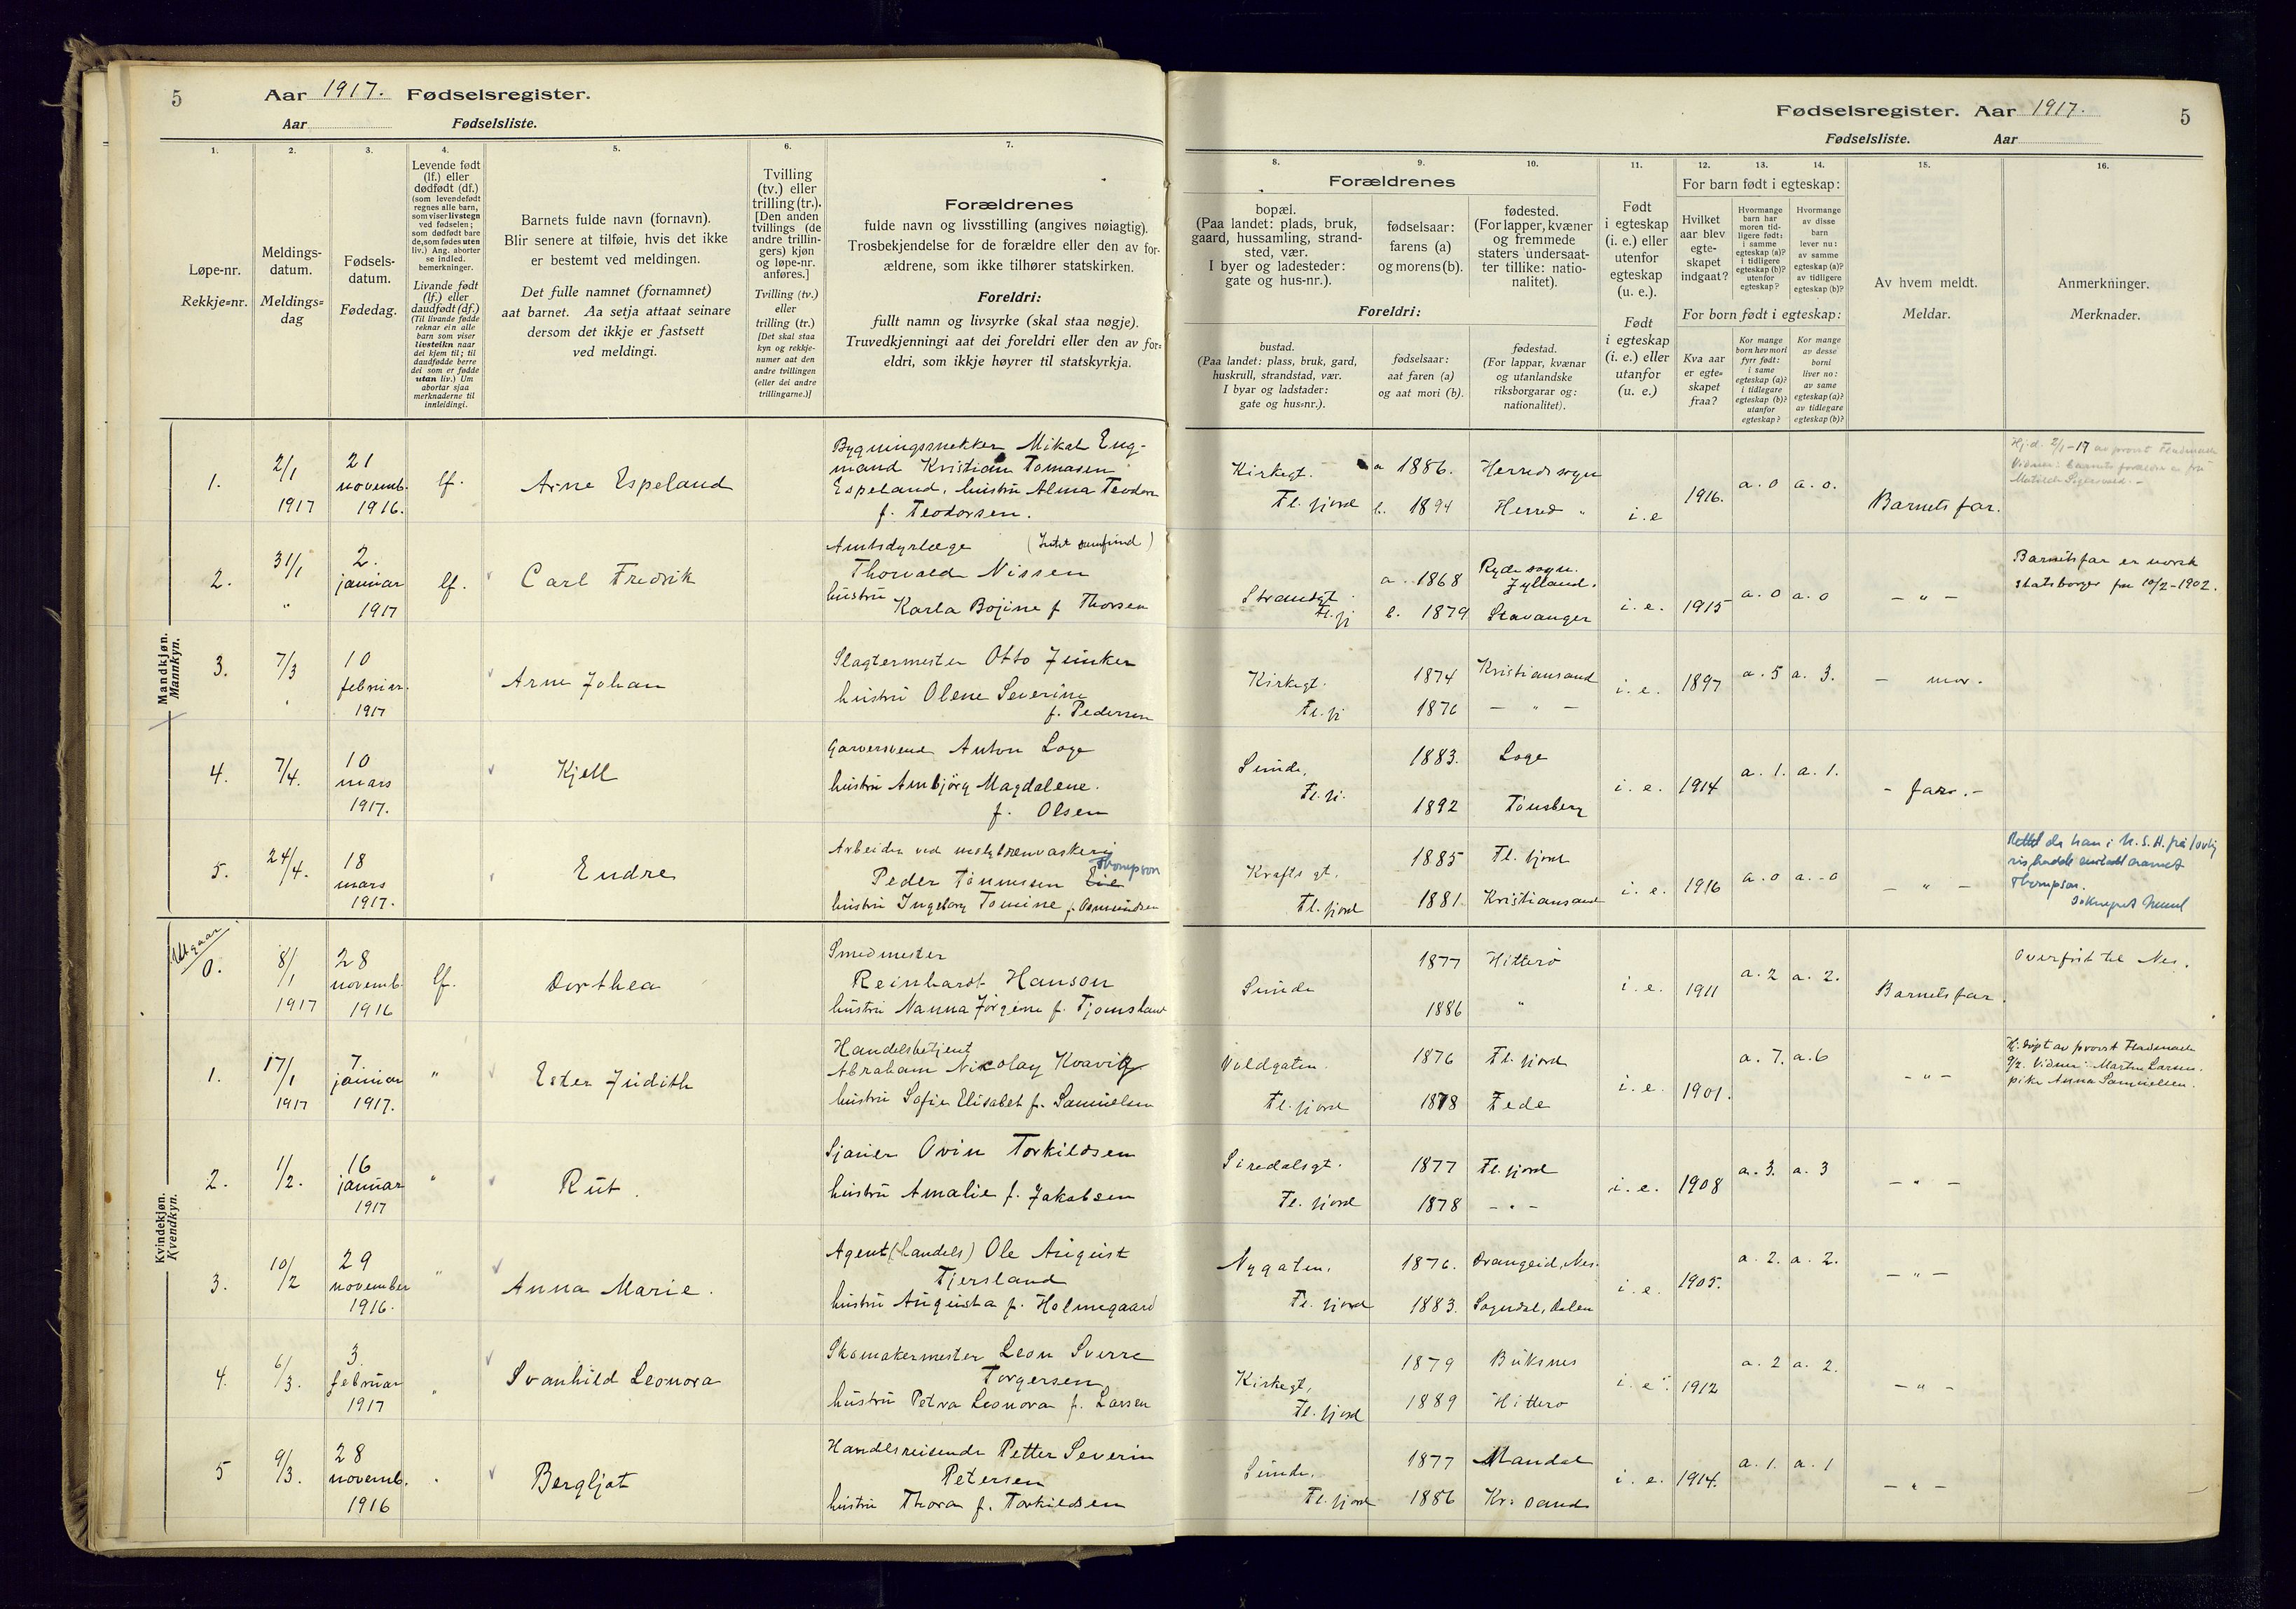 5
Aar 1917. Fødselsregister.
Aar Fødselsliste.
1.
Løpe-nr.
Rekkje=nr.
2.
Meldings-
datum.
Meldings=
dag
3.
Fødsels-
datum.
Fødedag.
4.
Levende født
(lf.) eller
dødfødt (df.)
(som levendefødt
regnes alle barn,
som viser livstegn
ved fødselen;
som dødfødt bare
de, som fødes uten
liv.) Ang. aborter
se indled.
bemerkninger.
Livande født
(lf.) eller
daudfødt (df.)
(Til livande fødde
reknar ein alle
barn som viser
livsteikn naar
dei kjem til; til
daudfødde berre
dei som er fødde
utan liv.) Um
abortar sjaa
merknaderne til
innleidingi.
5.
Barnets fulde navn (fornavn).
Blir senere at tilføie, hvis det ikke
er bestemt ved meldingen.
Det fulle namnet (fornamnet)
aat barnet. Aa setja attaat seinare
dersom det ikkje er fastsett
ved meldingi.
6.
Tvilling
(tv.) eller
trilling (tr.).
[Den anden
tvillings (de
andre trillin-
gers) kjøn
og løpe-nr.
anføres.]
Tvilling (tv.)
eller
trilling (tr.)
[Det skal staa
kyn og rekkje-
numer aat den
andre tvillingen
(eller dei andre
trillingarne.)]
7.
Forældrenes
fulde navn og livsstilling (angives nøiagtig).
Trosbekjendelse for de forældre eller den av for-
ældrene, som ikke tilhører statskirken.
Foreldri:
fullt namn og livsyrke (skal staa nøgje).
Truvedkjenningi aat dei foreldri eller den av for=
eldri, som ikkje høyrer til statskyrkja.
Mandkjøn.
Mannkyn.
1.
2/1
1917
21
novemb.
1916.
lf.
Arne Espeland
Bygningssnekker Mikal Eng-
mand Kristian Tomasen
Espeland, hustru Alma Teodora
f. Teodorsen.
2.
31/1
"
2.
januar
1917
lf.
Carl Fredrik
Amtsdyrlæge
Thorvald Nissen
hustru
Karla Bojine f Thorsen
3.
7/3
10
februar.
1917
Arne Johan
Slagtermester Otto Junker
hustru Olene Severine
f. Pedersen
4.
7/4.
10
mars
1917.
Kjell
Garversvend Anton Loge
hustru Ambjörg Magdalene.
f. Olsen
5.
24/4.
18
mars
1917.
Endre
Arbeider ved molybdænvaskeri
Thompson
Peder Tönnesen Lie
hustru Ingeborg Tomine f. Osmundsen
Kvindekjøn.
Kvendkyn.
Utgaar
0.
8/1
1917
28
novemb.
1916
lf.
Dorthea
Smedmester
Reinhardt Hanson
hustru Nanna Jörgine f. Tjomsland
1.
17/1
1917
7.
januar
1917.
"
Ester Judith
Handelsbetjent
Abraham Nicolay Kvavig
hustru Sofie Elisabet f. Samuelsen
2.
1/2.
16
januar
1917
"
Rut.
Sjauer Ovin Torkildsen
hustru Amalie f. Jakobsen
3.
10/2
29
november
1916.
"
Anna Marie.
Agent (handels) Ole August
Tjersland
hustru Augusta f. Holmegaard
4.
6/3.
3.
februar
1917
"
Svanhild Leonora
Skomakermester Leon Sverre
Torgersen
hustru Petra Leonora f. Larsen
5
9/3.
28
novemb.
1916
Bergljot
Handelsreisende Petter Severin
Petersen
hustru Thora f. Torkildsen
Fødselsregister. Aar 1917. 5
Fødselsliste. Aar
8.
Forældrenes
bopæl.
(Paa landet: plads, bruk,
gaard, hussamling, strand-
sted, vær.
I byer og ladesteder:
gate og hus-nr.).
Foreldri:
bustad.
(Paa landet: plass, bruk, gard,
huskrull, strandstad, vær.
I byar og ladstader:
gate og hus=nr.).
9.
fødselsaar:
farens (a)
og morens (b).
fødselsaar:
aat faren (a)
og aat mori (b).
10.
fødested.
(For lapper, kvæner
og fremmede
staters undersaat-
ter tillike: natio-
nalitet).
fødestad.
(For lappar, kvænar
og utanlandske
riksborgarar og:
nationalitet).
11.
Født
i egteskap
(i. e.) eller
utenfor
egteskap
(u. e.).
Født
i egteskap
(i. e.) eller
utanfor
(u. e.)
12.
For barn født i egteskap:
Hvilket
aar blev
egte-
skapet
indgaat?
For born født i egteskap:
Kva aar
er egte=
skapet
fraa?
13.
Hvormange
barn har
moren tid-
ligere født:
i samme
egteskap (a)?
i tidligere
egteskap (b)?
utenfor
egteskap?
Kor mange
born hev mori
fyrr født:
i same
egteskap (a)?
i tidlegare
egteskap (b)?
utanfor
egteskap?
14.
Hvormange
av disse
barn
lever nu:
av samme
egteskap (a)?
av tidligere
egteskap (b)?
Kor mange
av desse
borni
liver no:
av same
egteskap (a)?
av tidlegare
egteskap (b)?
15.
Av hvem meldt.
Meldar.
16.
Anmerkninger.
Merknader.
Kirkegt.
Fl. fjord
a 1886.
b. 1894
Herreds sogn
Herred "
i. e
1916.
a. 0 a. 0.
Barnets far.
Strandgt.
Fl. fj
a. 1868
b. 1879
Ryde sogn.
Jylland.
Stavanger
i. e.
1915
a. 0 a. 0
– " –
Barnets far er norsk
statsborger fra 10/2-1902.
Kirkegt.
Fl. fj
1874
1876
Kristiansand
– " –
i. e.
1897
a. 5 a. 3.
– mor.
Sunde,
Fl. fj.
1883.
1892
Loge
Tönsberg
i. e.
1914
a. 1. a. 1.
- far. -
Krafts gt.
Fl. fjord
1885
1881.
Fl. fjord
Kristiansand
i. e.
1916
a. 0 a. - 0
– " –
Thompson.
Sunde
1877
1886
Hitterö
"
i. e.
1911
a. 2 a. 2.
Barnets far.
Overfört til Nes.
Voldgaten.
Fl. fjord
1876
1878
Fl. fjord
Fede
i. e.
1901.
a. 7. a. 6
– " –
9/2. Vidner: Martin Larsen.
pike Anna Samuelsen.
Siredalsgt.
Fl. fjord
1877
1878
Fl. fjord
– " –
i. e.
1908
a. 3. a. 3
– " –
Nygaten,
Fl. fjord
1876.
1883.
Drangeid, Nes.
Sogndal, Dalen
i. e.
1905.
a. 2. a. 2.
– " –
Kirkegt,
Fl. fjord
1879
1889
Buksnes
Hitterö
i. e.
1912
a. 2 a. 2.
– " –
Sunde,
Fl. fjord
1877
1886
Mandal
Kr: sand
i. e.
1914.
a. 1. a. 1
– " –